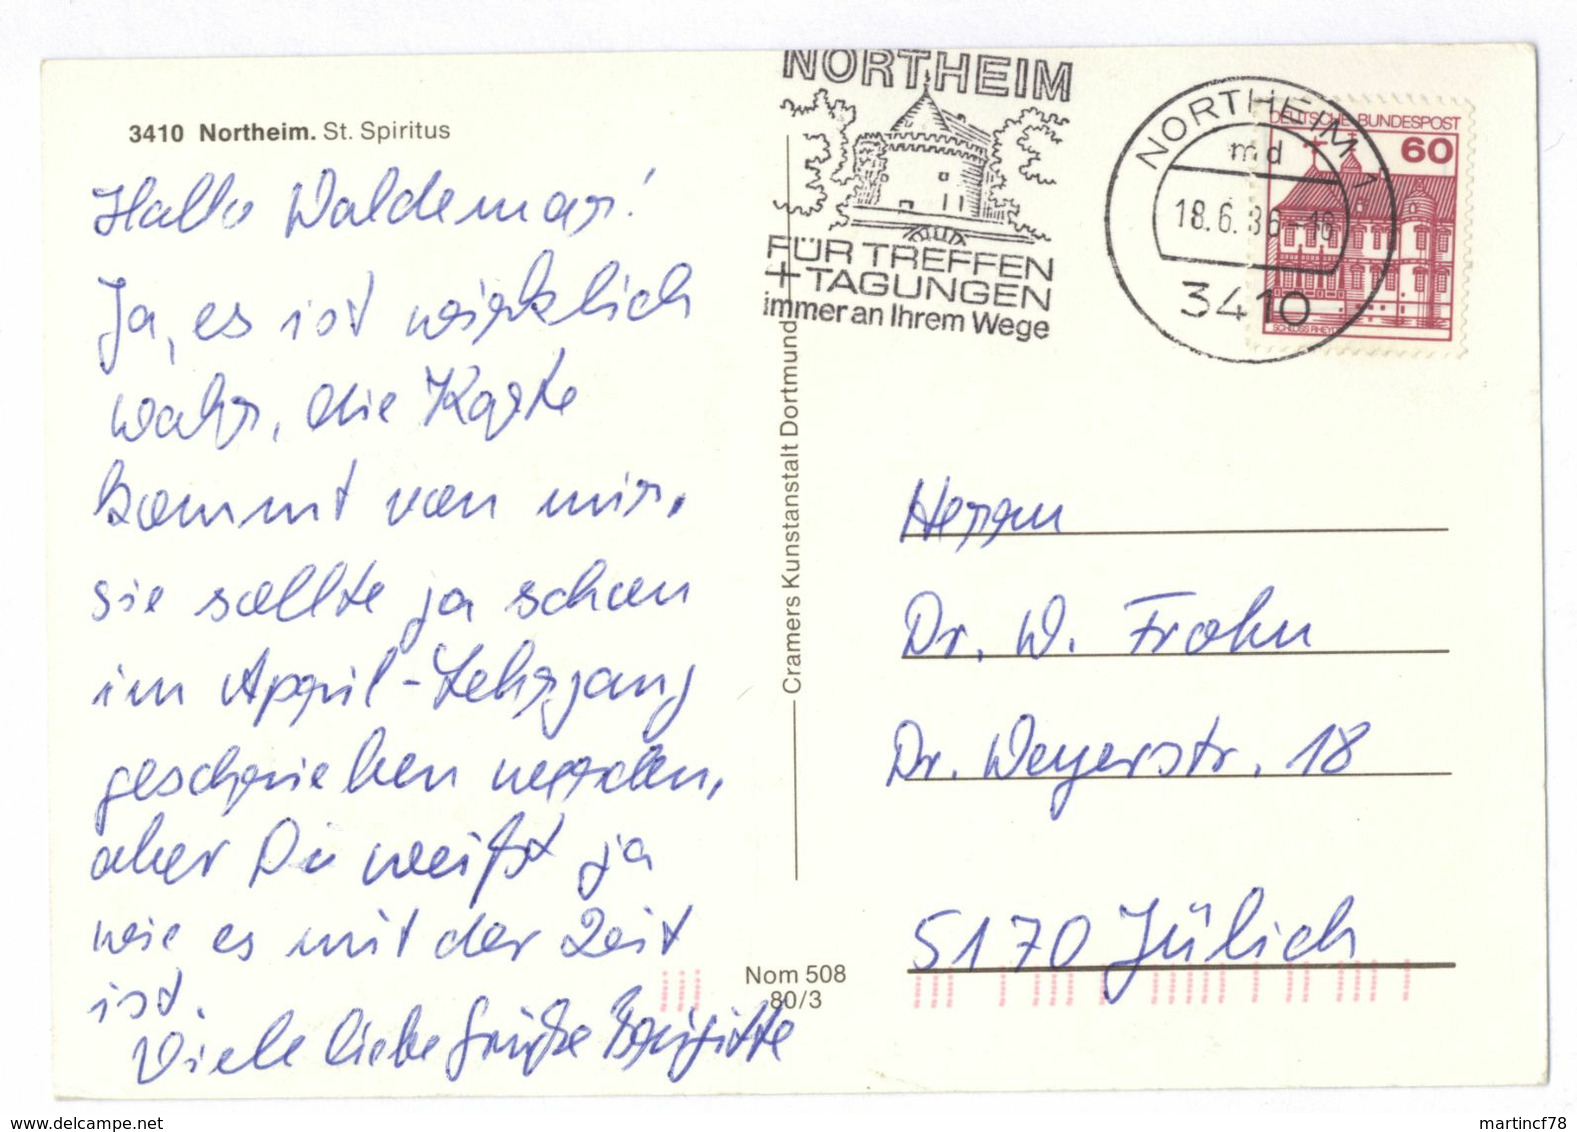 3410 Northeim. St. Spiritus
Hallo Waldemar!
Ja, es ist wirklich
wahr, die Karte
kommt von mir,
sie sollte ja schon
im April-Lehrgang
geschrieben werden,
aber Du weißt ja
wie es mit der Zeit
ist.
Viele liebe Grüße Brigitte
Cramers Kunstanstalt Dortmund
Nom 508
80/3
NORTHEIM
FÜR TREFFEN
+TAGUNGEN
immer an Ihrem Wege
NORTHEIM 1
md
18.6.86-16
3410
DEUTSCHE BUNDESPOST
60
SCHLOSS RHEYDT
Herrn
Dr. W. Frohn
Dr. Weyerstr. 18
5170 Jülich
www.delcampe.net
martincf78